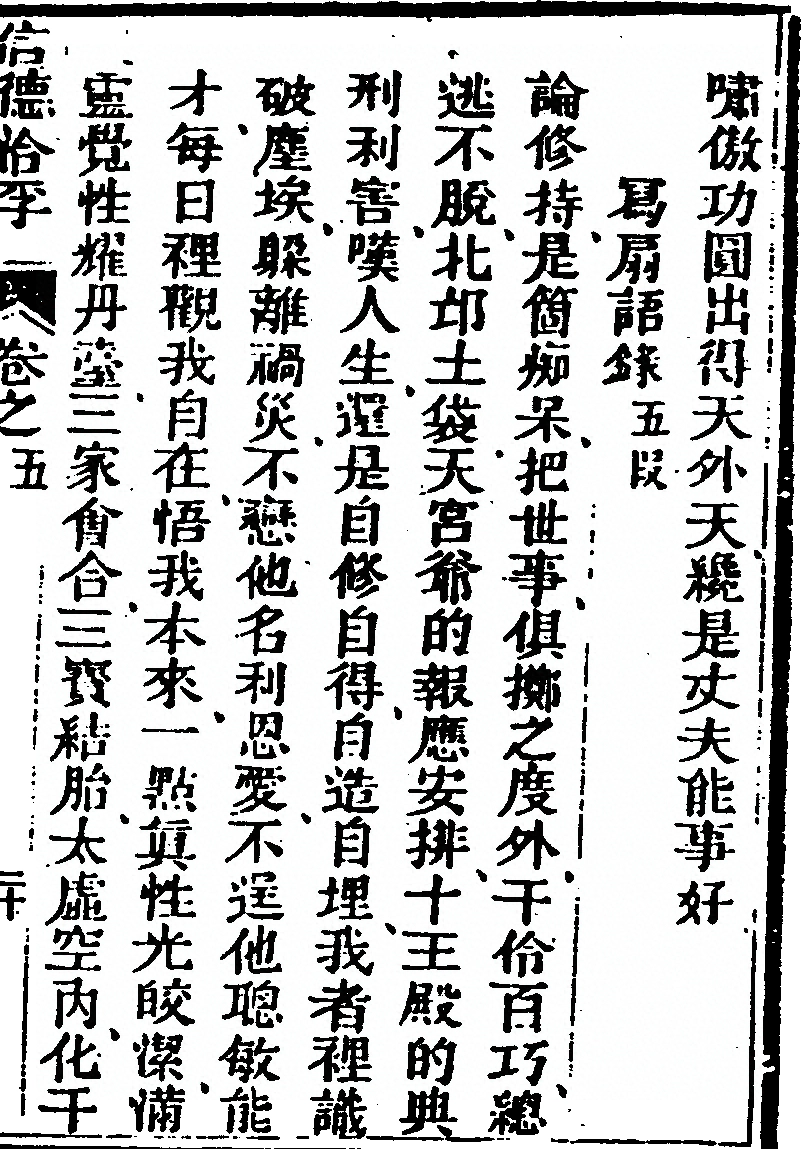 嘯傲功圓出得天外天纔是丈夫能事好
寫扇語錄五段
論修持是箇痴呆把世事俱擲之度外千伶百巧總
逃不脫北邙土袋天宮爺的報應安排十王殿的典
刑利害嘆人生還是自修自得自造自埋我者裡識
破塵埃躲離禍災不戀他名利恩愛不逞他聰敏能
才每日裡觀我自在悟我本來一點真性光皎潔滿
靈覺性耀丹臺三家會合三寶結胎太虛空內化千
信德恰孚 卷之五 二十